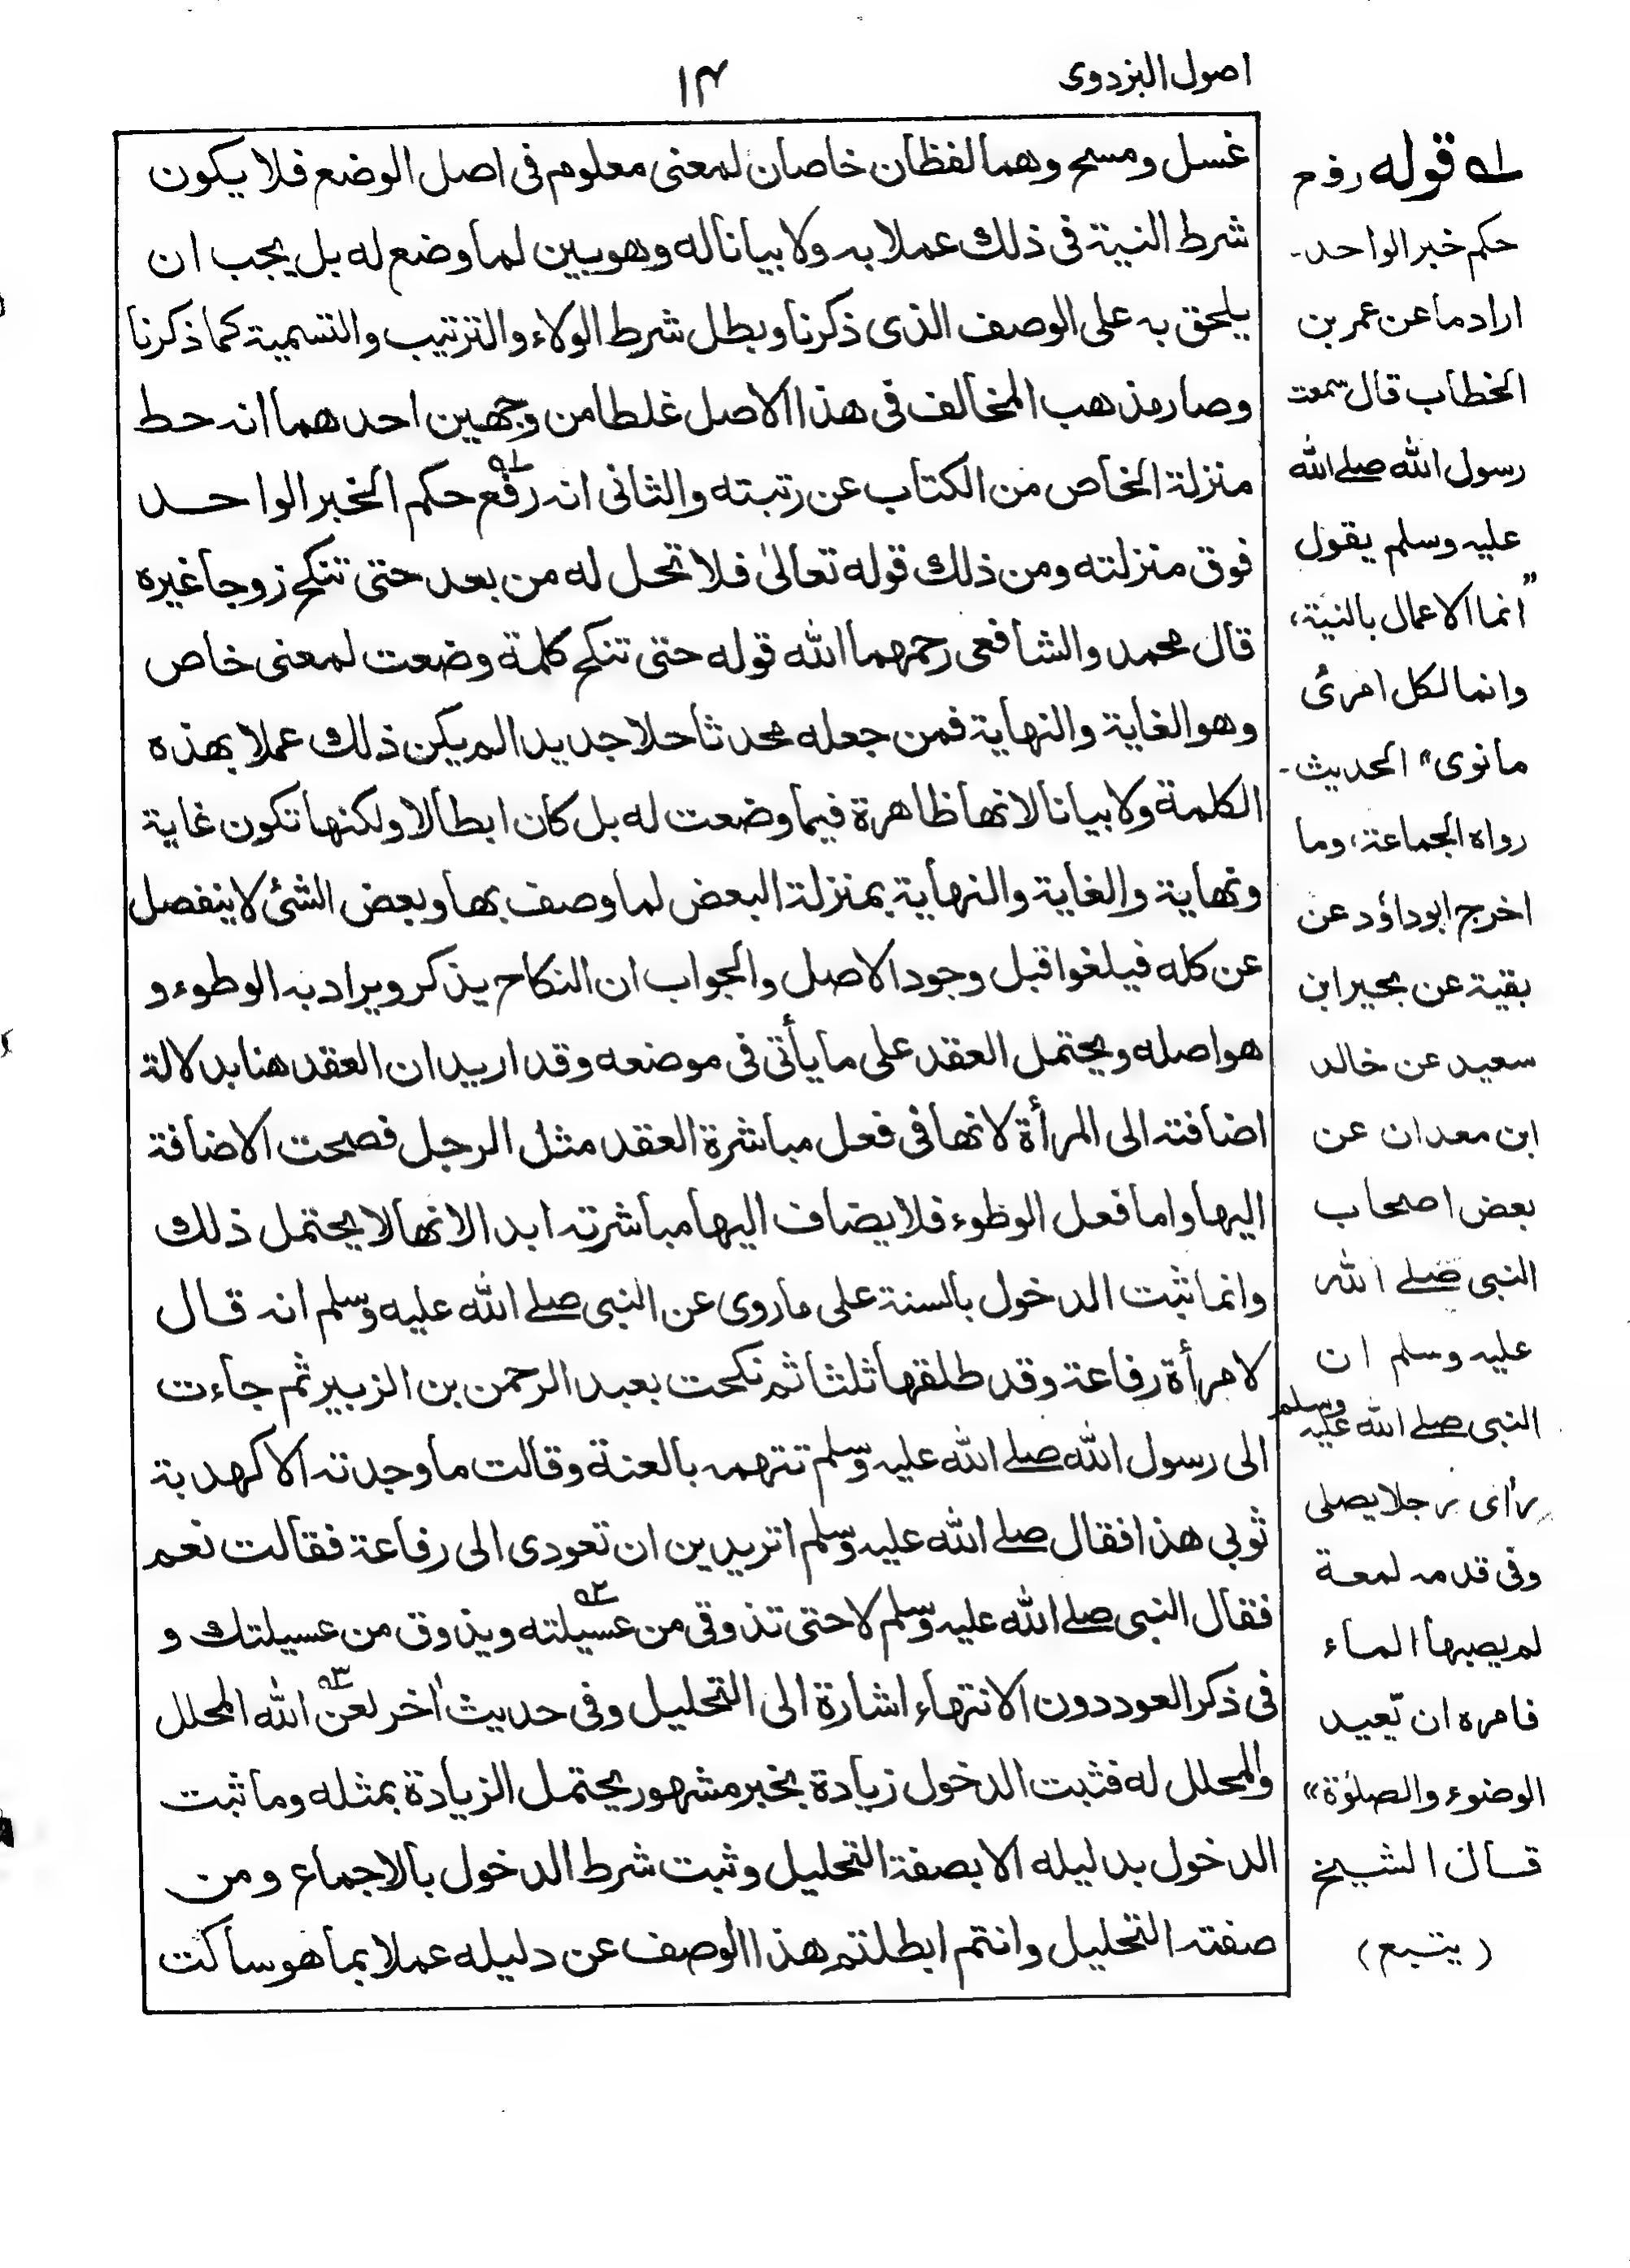 اصول البزدوى
١٤
غسل ومسح وهما لفظان خاصان لمعنى معلوم فى اصل الوضع فلا يكون
شرط النية فى ذلك عملا به ولا بيانا له وهو بيين لما وضع له بل يجب ان
يلحق به على الوصف الذى ذكرنا وبطل شرط الولاء والترتيب والتسمية كما ذكرنا
وصار مذهب المخالف فى هذا الاصل غلطا من وجهين احدهما انه حط
منزلة الخاص من الكتاب عن رتبته والثانى انه رفع١ حكم الخبر الواحد
فوق منزلته ومن ذلك قوله تعالىٰ فلا تحل له من بعد حتى تنكح زوجا غيره
قال محمد والشافعى رحمهما الله قوله حتى تنكح كلمة وضعت لمعنى خاص
وهو الغاية والنهاية فمن جعله محدثا حلا جديدا لم يكن ذلك عملا بهذه
الكلمة ولا بيانا لانها ظاهرة فيما وضعت له بل كان ابطالا ولكنها تكون غاية
ونهاية والغاية والنهاية بمنزلة البعض لما وصف بها وبعض الشئ لا ينفصل
عن كله فيلغوا قبل وجود الاصل والجواب ان النكاح يذكر ويراد به الوطوء و
هو اصله ويحتمل العقد على ما يأتى فى موضعه وقد اريد ان العقد هنا بدلالة
اضافته الى المرأة لانها فى فعل مباشرة العقد مثل الرجل فصحت الاضافة
اليها واما فعل الوطوء فلا يضاف اليها مباشرته ابدا لانها لا يحتمل ذلك
وانما ثبت الدخول بالسنة على ما روى عن النبى صلے الله عليه وسلم انه قال
لامرأة رفاعة وقد طلقها ثلثا ثم نكحت بعبد الرحمن بن الزبير ثم جاءت
الى رسول الله صلے الله عليه وسلم تتهمه بالعنة وقالت ما وجدته الا كهدبة
ثوبى هذا فقال صلے الله عليه وسلم اتريدين ان تعودى الى رفاعة فقالت نعم
فقال النبى صلے الله عليه وسلم لا حتى تذوقى من عسيلته٢ ويذوق من عسيلتك و
فى ذكر العود دون الانتهاء اشارة الى التحليل وفى حديث اٰخر لعن٣ الله المحلل
والمحلل له فثبت الدخول زيادة بخبر مشهور يحتمل الزيادة بمثله وما ثبت
الدخول بدليله الا بصفة التحليل وثبت شرط الدخول بالاجماع ومن
صفته التحليل وانتم ابطلتم هذا الوصف عن دليله عملا بما هو ساكت
١ قوله رفع
حكم خبر الواحد۔
اراد ما عن عمر بن
الخطاب قال سمعت
رسول الله صلے الله
عليه وسلم يقول
"انما الاعمال بالنية،
وانما لكل امرئ
ما نوى" الحديث۔
رواه الجماعة، وما
اخرج ابوداؤد عن
بقية عن بحير ابن
سعيد عن خالد
ابن معدان عن
بعض اصحاب
النبى صلے الله
عليه وسلم ان
النبى صلے الله عليه وسلم
رأى رجلا يصلى
وفى قدمه لمعة
لم يصبها الماء
فامره ان يّعيد
الوضوء والصلوٰة"
قال الشيخ
(يتبع)